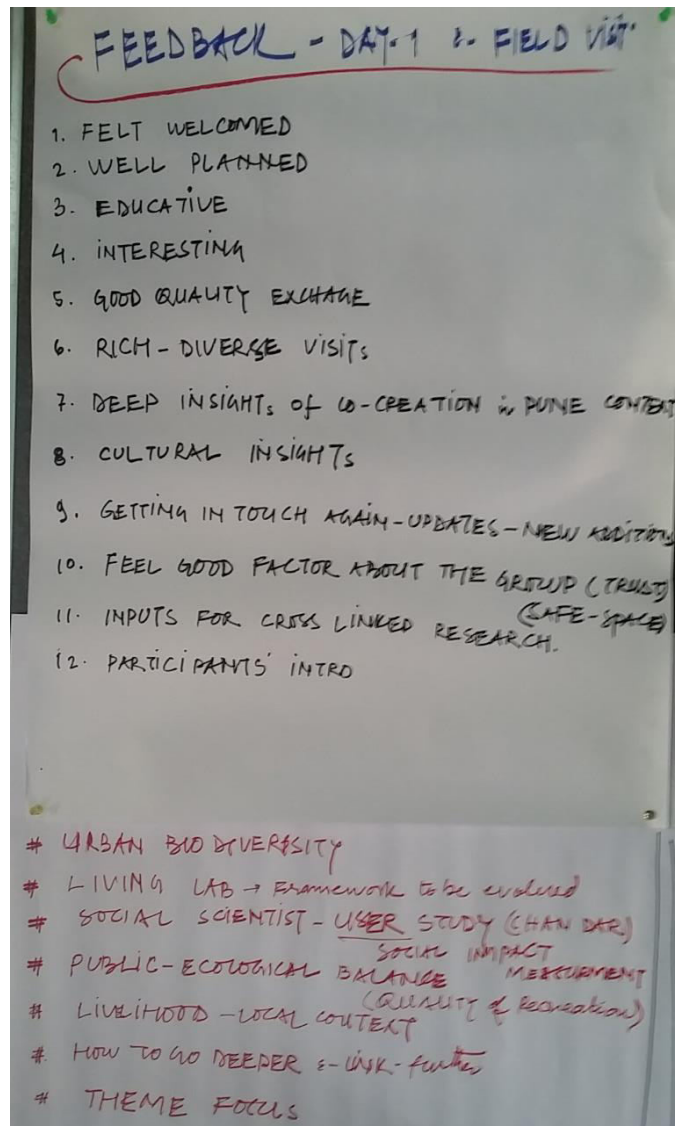 FEEDBACK - DAY-1 & FIELD VISIT
1. FELT WELCOMED
2. WELL PLANNED
3. EDUCATIVE
4. INTERESTING
5. GOOD QUALITY EXCHAGE
6. RICH - DIVERSE VISITS
7. DEEP INSIGHTS OF CO-CREATION in PUNE CONTEXT
8. CULTURAL INSIGHTS
9. GETTING IN TOUCH AGAIN - UPDATES - NEW ADDITIONS
10. FEEL GOOD FACTOR ABOUT THE GROUP (TRUST)
(SAFE-SPACE)
11. INPUTS FOR CROSS LINKED RESEARCH.
12. PARTICIPANTS' INTRO
# URBAN BIODIVERSITY
# LIVING LAB → Framework to be evolved
# SOCIAL SCIENTIST - USER STUDY (CHANDAR)
SOCIAL IMPACT
MEASURMENT
# PUBLIC-ECOLOGICAL BALANCE
(QUALITY of Recreation)
# LIVELIHOOD - LOCAL CONTEXT
# HOW TO GO DEEPER & - link - further
# THEME FOCUS